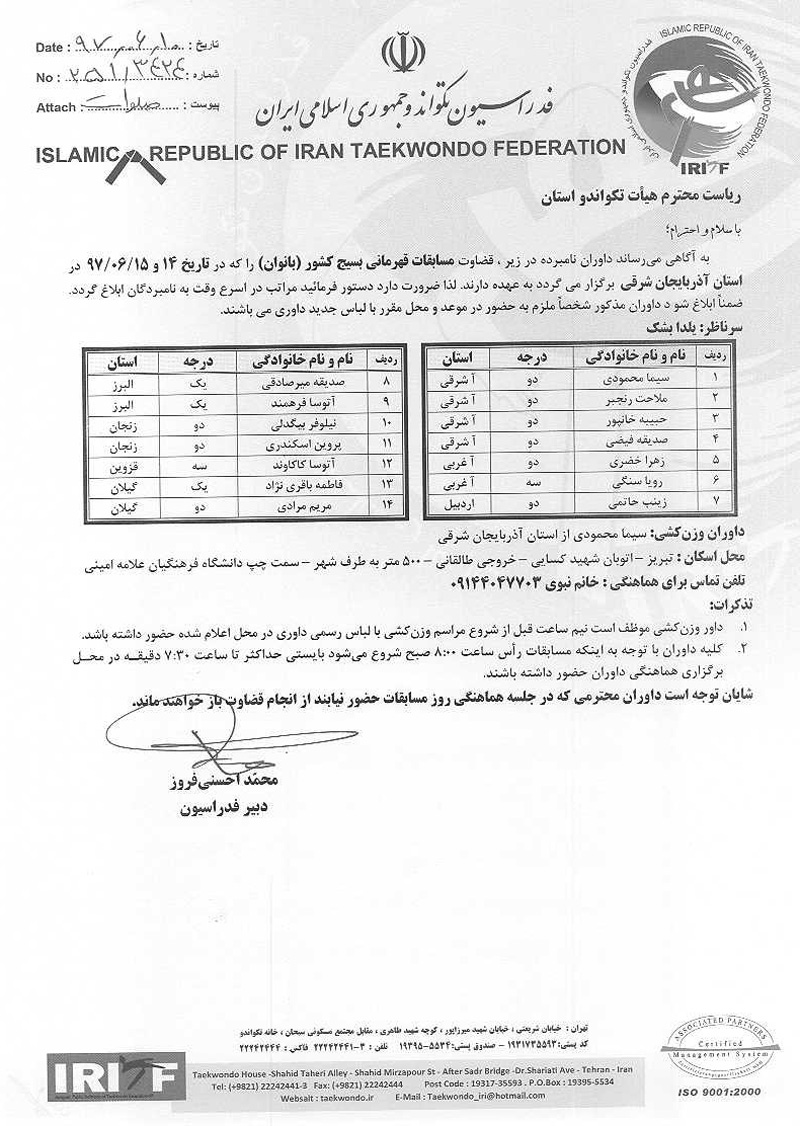 Date : ۹۷٫۶٫۱۰ تاریخ :
No : ۲۵۱/۳۴۲۴ شماره :
Attach : پیوست :
فدراسیون تکواندو جمهوری اسلامی ایران
ISLAMIC REPUBLIC OF IRAN TAEKWONDO FEDERATION
ISLAMIC REPUBLIC OF IRAN TAEKWONDO FEDERATION
فدراسیون تکواندو جمهوری اسلامی ایران
IRITF
ریاست محترم هیأت تکواندو استان
با سلام و احترام؛
به آگاهی می‌رساند داوران نامبرده در زیر ، قضاوت مسابقات قهرمانی بسیج کشور (بانوان) را که در تاریخ ۱۴ و ۹۷/۰۶/۱۵ در
استان آذربایجان شرقی برگزار می گردد به عهده دارند. لذا ضرورت دارد دستور فرمائید مراتب در اسرع وقت به نامبردگان ابلاغ گردد.
ضمناً ابلاغ شو د داوران مذکور شخصاً ملزم به حضور در موعد و محل مقرر با لباس جدید داوری می باشند.
سرناظر: یلدا بشک
ردیف نام و نام خانوادگی درجه استان
۱ سیما محمودی دو آ شرقی
۲ ملاحت رنجبر دو آ شرقی
۳ حبیبه خانپور دو آ شرقی
۴ صدیقه فیضی دو آ شرقی
۵ زهرا خضری دو آ غربی
۶ رویا سنگی سه آ غربی
۷ زینب حاتمی دو اردبیل
ردیف نام و نام خانوادگی درجه استان
۸ صدیقه میرصادقی یک البرز
۹ آتوسا فرهمند یک البرز
۱۰ نیلوفر بیگدلی دو زنجان
۱۱ پروین اسکندری دو زنجان
۱۲ آتوسا کاکاوند سه قزوین
۱۳ فاطمه باقری نژاد یک گیلان
۱۴ مریم مرادی دو گیلان
داوران وزن‌کشی: سیما محمودی از استان آذربایجان شرقی
محل اسکان : تبریز – اتوبان شهید کسایی – خروجی طالقانی – ۵۰۰ متر به طرف شهر – سمت چپ دانشگاه فرهنگیان علامه امینی
تلفن تماس برای هماهنگی : خانم نبوی ۰۹۱۴۴۰۴۷۷۰۳
تذکرات:
۱. داور وزن‌کشی موظف است نیم ساعت قبل از شروع مراسم وزن‌کشی با لباس رسمی داوری در محل اعلام شده حضور داشته باشد.
۲. کلیه داوران با توجه به اینکه مسابقات رأس ساعت ۸:۰۰ صبح شروع می‌شود بایستی حداکثر تا ساعت ۷:۳۰ دقیقه در محل
برگزاری هماهنگی داوران حضور داشته باشند.
شایان توجه است داوران محترمی که در جلسه هماهنگی روز مسابقات حضور نیابند از انجام قضاوت باز خواهند ماند.
محمّد احسنی‌فروز
دبیر فدراسیون
تهران : خیابان شریعتی ، خیابان شهید میرزاپور ، کوچه شهید طاهری ، مقابل مجتمع مسکونی سبحان ، خانه تکواندو
کد پستی: ۱۹۳۱۷۳۵۵۹۳ - صندوق پستی: ۵۵۳۴-۱۹۳۹۵ تلفن : ۳-۲۲۲۴۲۴۴۱ فاکس : ۲۲۲۴۲۴۴۴
IRITF
Taekwondo House -Shahid Taheri Alley - Shahid Mirzapour St - After Sadr Bridge -Dr.Shariati Ave - Tehran - Iran
Tel: (+9821) 22242441-3 Fax: (+9821) 22242444 Post Code : 19317-35593 . P.O.Box : 19395-5534
Websait : taekwondo.ir E-Mail : Taekwondo_iri@hotmail.com
ASSOCIATED PARTNERS
Certified
Management System
ISO 9001:2000